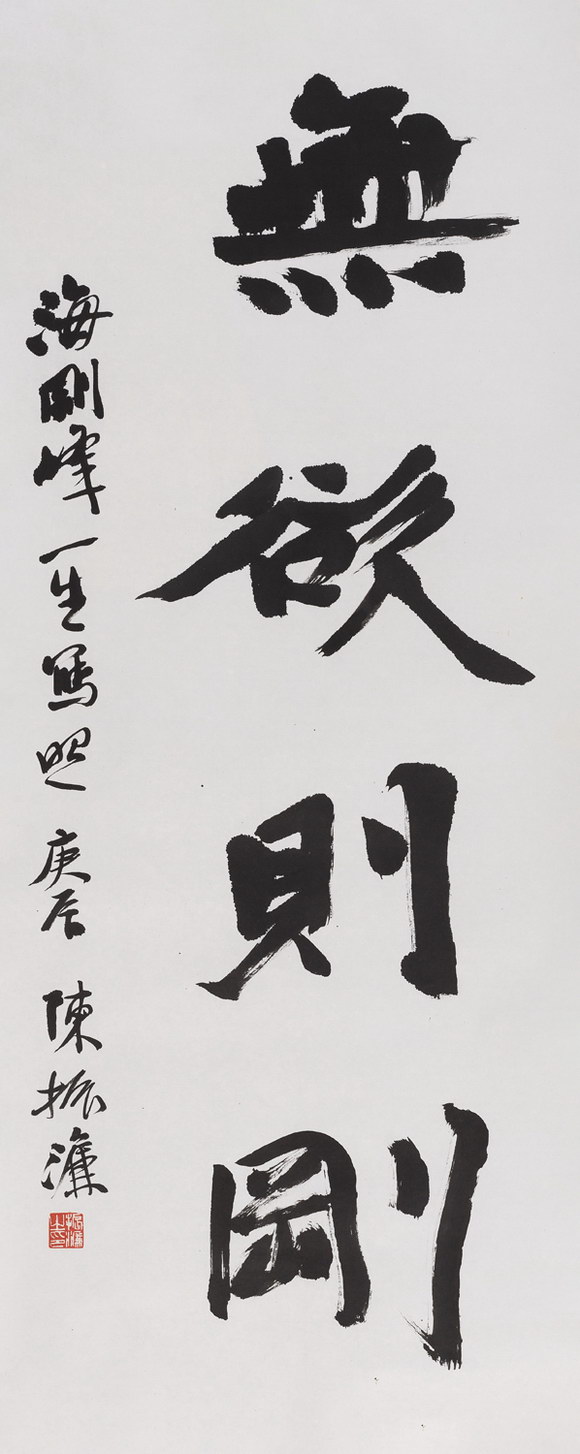 無欲則剛
海剛峰一生寫照 庚辰 陳振濂